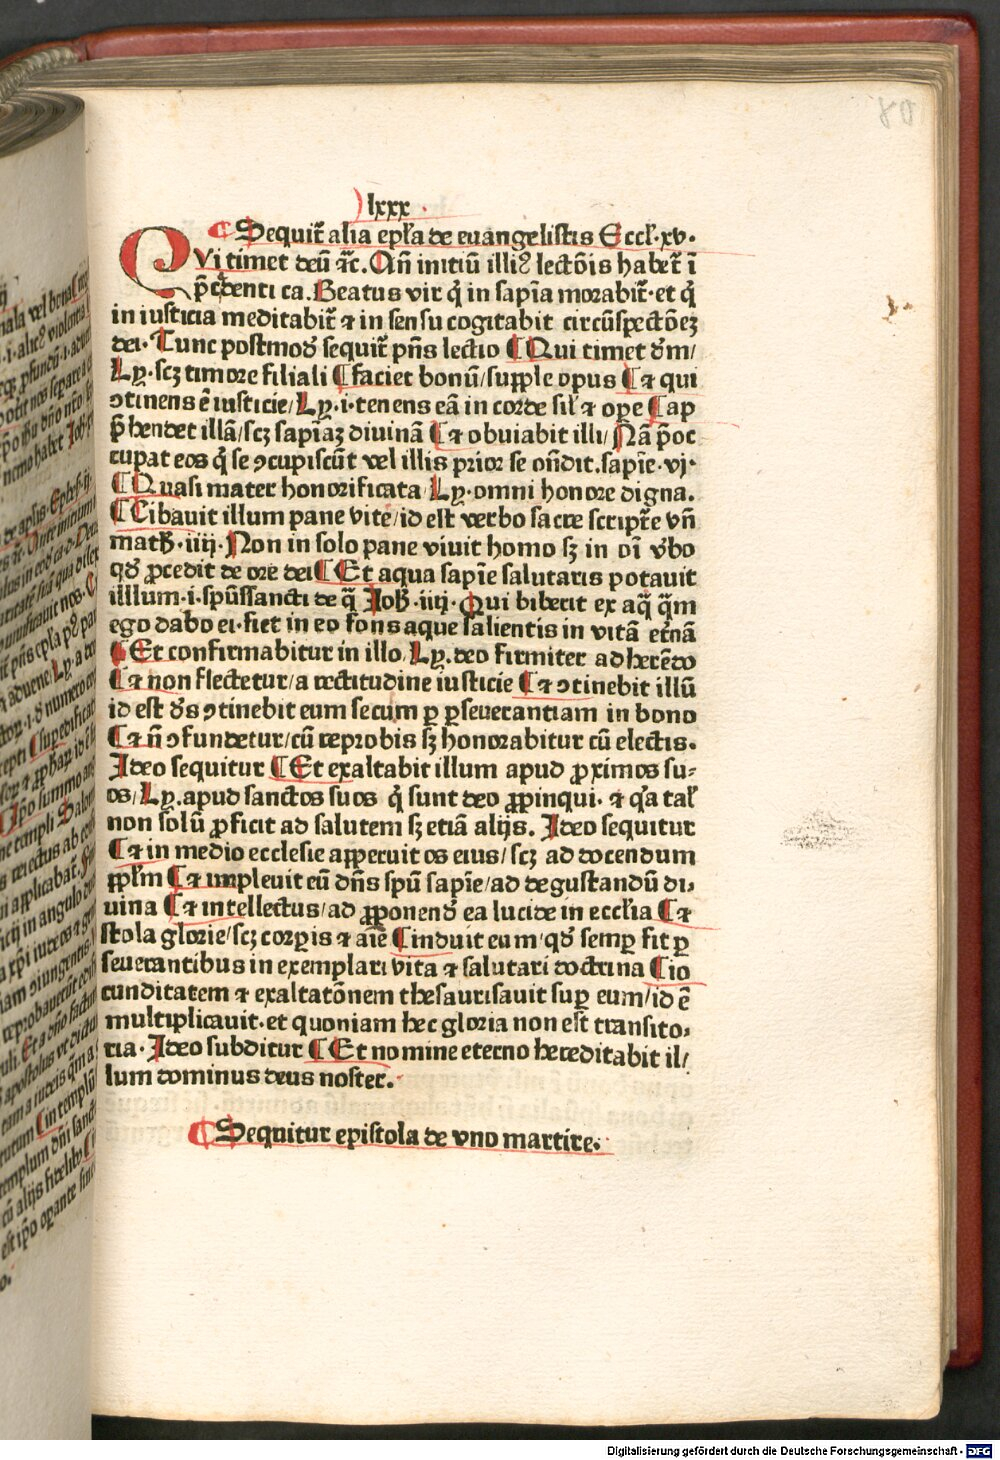 80
lxxx
¶ Sequit̃ alia ep̃la de euangelistis Eccl̃·xv·
QVi timet deū ⁊c̃.An̄ initiū illiꝰ lectōis habet̃ ī
p̄cedenti ca.Beatus vir q̇ in sapīa morabit̃·et q̇
in iusticia meditabit̃ ⁊ in sensu cogitabit circūspectōeꝫ
dei·Tunc postmodū sequit̃ pn̄s lectio ¶ Qui timet dm̄/
Ly̆·scꝫ timore filiali ¶ faciet bonū/supple opus ¶ ⁊ qui
ↄtinens ē iusticie/Ly̆·i·tenens eā in corde sil̃ ⁊ oꝑe ¶ ap
p̄hendet illā/scꝫ sapīaꝫ diuinā ¶ ⁊ obuiabit illi/Nā p̄oc
cupat eos q̇ se ↄcupiscūt vel illis prior se on̄dit.sapīe·vj·
¶ Quasi mater honorificata Ly̆·omni honore digna.
¶ Cibauit illum pane vite/id est verbo sacre script̃e vn̄
math̃·iiij·Non in solo pane viuit homo sꝫ in oī v̄bo
qd̄ ꝓcedit de ore dei ¶ Et aqua sapīe salutaris potauit
illlum·i·spūssancti de q̄ Joh̃·iiij·Qui biberit ex aq̄ q̄m
ego dabo ei·fiet in eo fons aque salientis in vitā et̃nā
¶ Et confirmabitur in illo/Ly̆.deo firmiter adherēdo
¶ ⁊ non flectetur/a rectitudine iusticie ¶ ⁊ ↄtinebit illū
id est d̄s ↄtinebit eum secum ꝑ ꝑseuerantiam in bono
¶ ⁊ n̄ ↄfundetur/cū reprobis sꝫ honorabitur cū electis.
Ideo sequitur ¶ Et exaltabit illum apud ꝓximos su⸗
os/Ly̆.apud sanctos suos q̇ sunt deo ꝓpinqui· ⁊ q̇a tal̃
non solū ꝓficit ad salutem sꝫ etiā alijs. Ideo sequitur
¶ ⁊ in medio ecclesie apperuit os eius/scꝫ ad docendum
ppl̄m ¶ ⁊ impleuit eū dn̄s spū sapīe/ad degustandū di⸗
uina ¶ ⁊ intellectus/ad ꝓponend̄ ea lucide in eccl̃ia ¶ ⁊
stola glorie/scꝫ corꝑis ⁊ aīe ¶ induit eum/qd̄ semꝑ fit ꝑ
seuerantibus in exemplari vita ⁊ salutari doctrina ¶ io
cunditatem ⁊ exaltatōnem thesaurisauit suꝑ eum/id ē
multiplicauit·et quoniam hec gloria non est transito⸗
ria·Ideo subditur ¶ Et nomine eterno hereditabit il/
lum dominus deus noster.
¶ Sequitur epistola de vno martire.
Digitalisierung gefördert durch die Deutsche Forschungsgemeinschaft - DFG